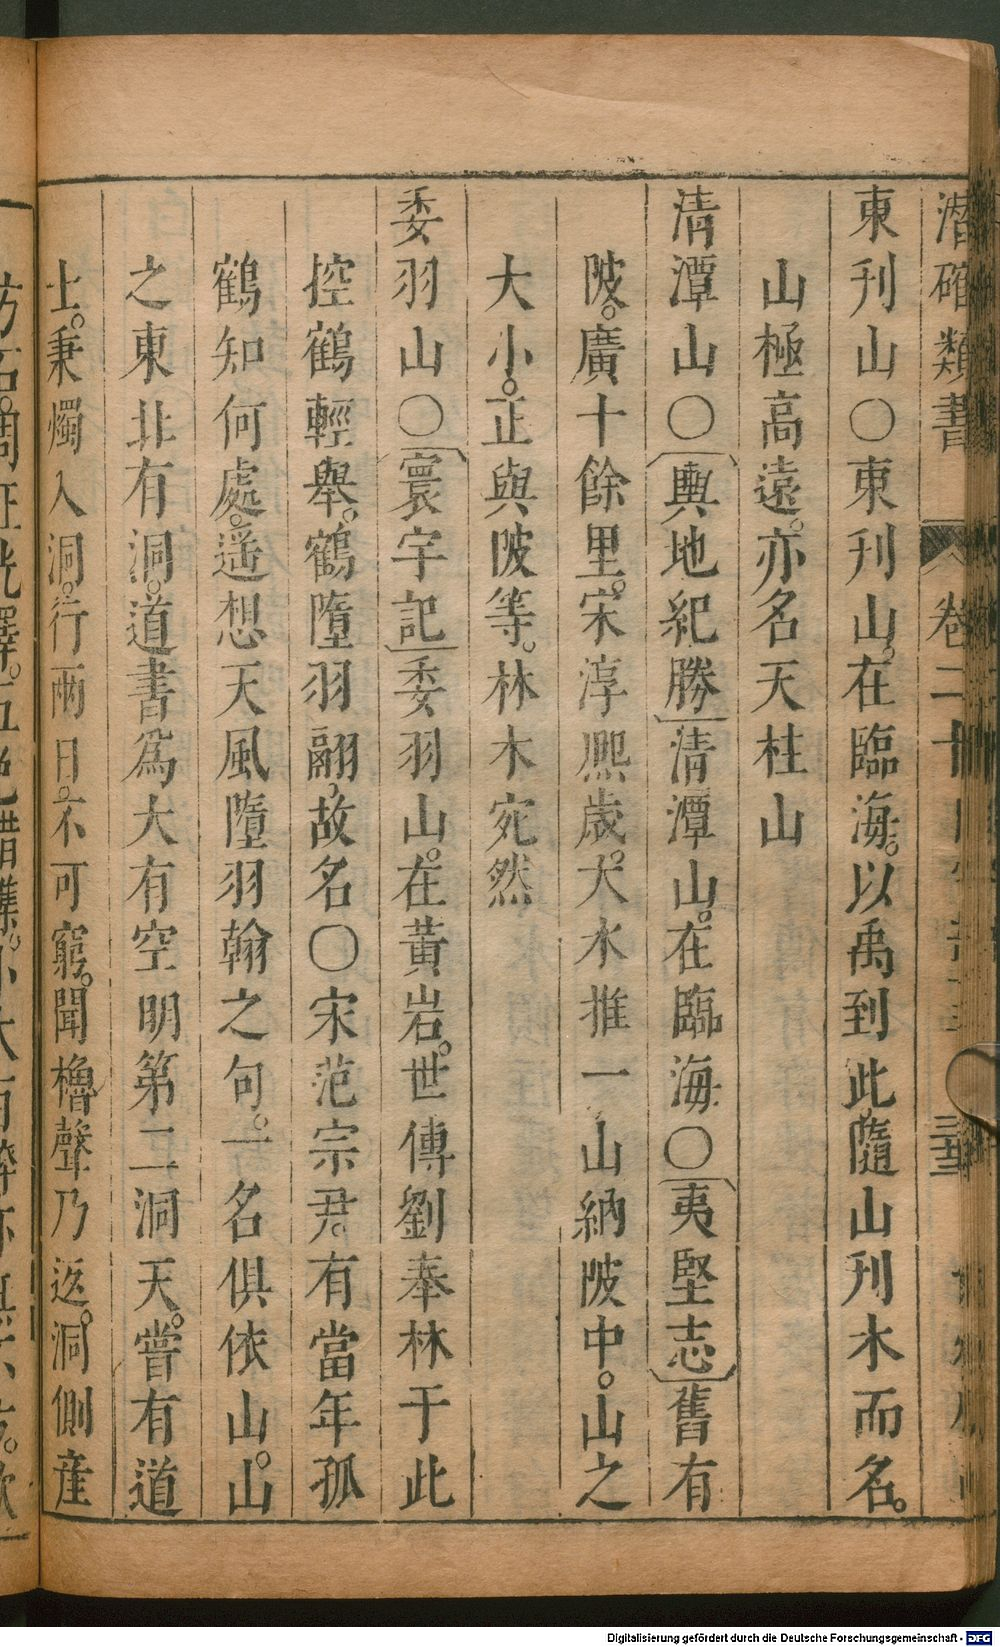 潛確類書 卷二十
東刋山〇東刋山。在臨海。以禹到此隨山刋木而名。
山極高遠。亦名天柱山
清潭山〇輿地紀勝清潭山。在臨海〇夷堅志舊有
陂。廣十餘里。宋淳熈歲。大水推一山納陂中。山之
大小。正與陂等。林木宛然
委羽山〇寰宇記委羽山。在黃岩。世傳劉奉林于此
控鶴輕舉。鶴墮羽翮。故名〇宋范宗君。有當年孤
鶴知何處。遥想天風墮羽翰之句。一名俱依山。山
之東北有洞。道書爲大有空明第二洞天。嘗有道
上。秉燭入洞。行兩日。不可窮。聞櫓聲乃返。洞側産
Digitalisierung gefördert durch die Deutsche Forschungsgemeinschaft - DFG